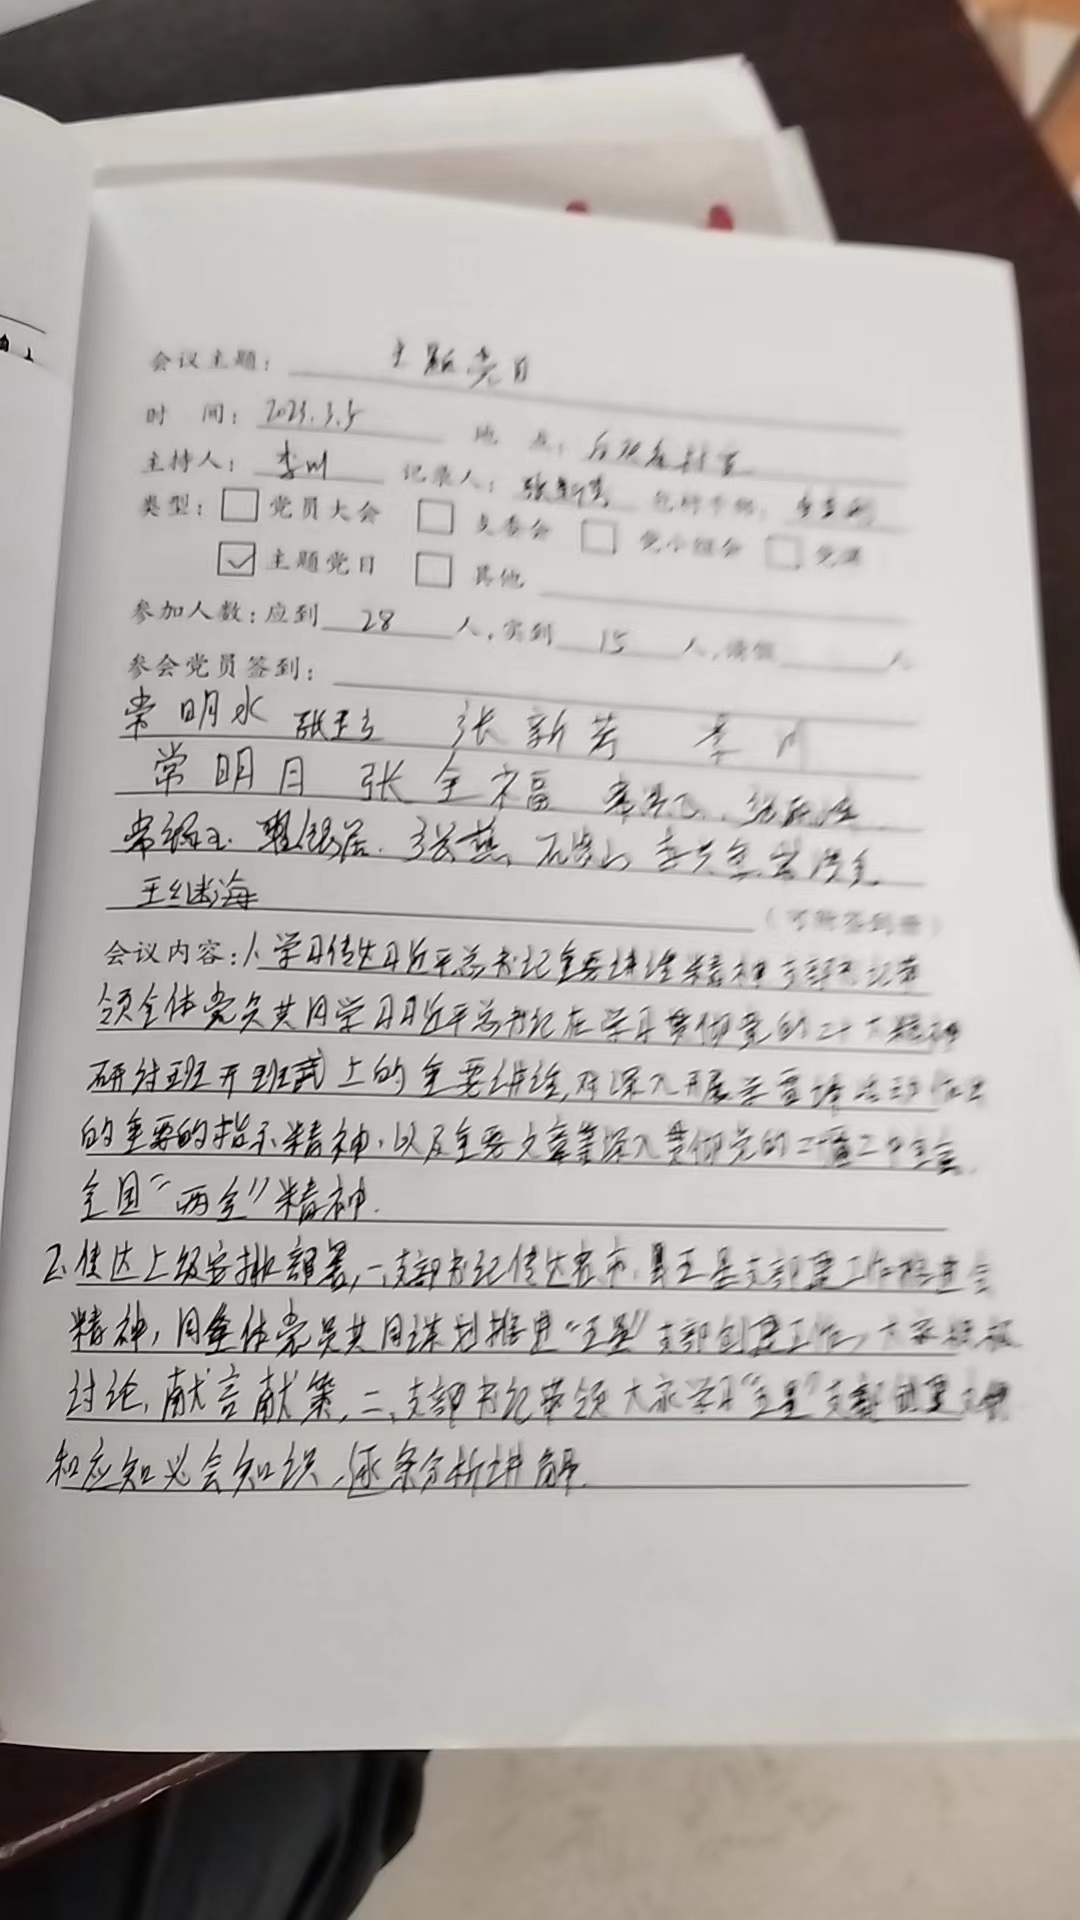 会议主题: 主题党日
时 间: 2023.3.5 地 点:
主持人: 李川 记录人: 张新芳
类型: 党员大会 支委会 党小组会 党课
主题党日 其他
参加人数:应到 28 人,实到 15 人,请假 人
参会党员签到:
常明水 张玉立 张新芳 李川
常明月 张全福
张燕
王继海
(可附签到册)
会议内容:1、学习传达习近平总书记重要讲话精神,支部书记带
领全体党员共同学习习近平总书记在学习贯彻党的二十大精神
研讨班开班式上的重要讲话,对深入开展
的重要的指示精神,以及重要文章等深入贯彻党的二十届二中全会、
全国“两会”精神.
2、传达上级安排部署,一、支部书记传达省市、县五星支部建工作推进会
精神,同全体党员共同谋划推进“五星”支部创建工作,大家积极
讨论,献言献策,二、支部书记带领大家学习“五星”支部创建
和应知必会知识,逐条分析讲解.